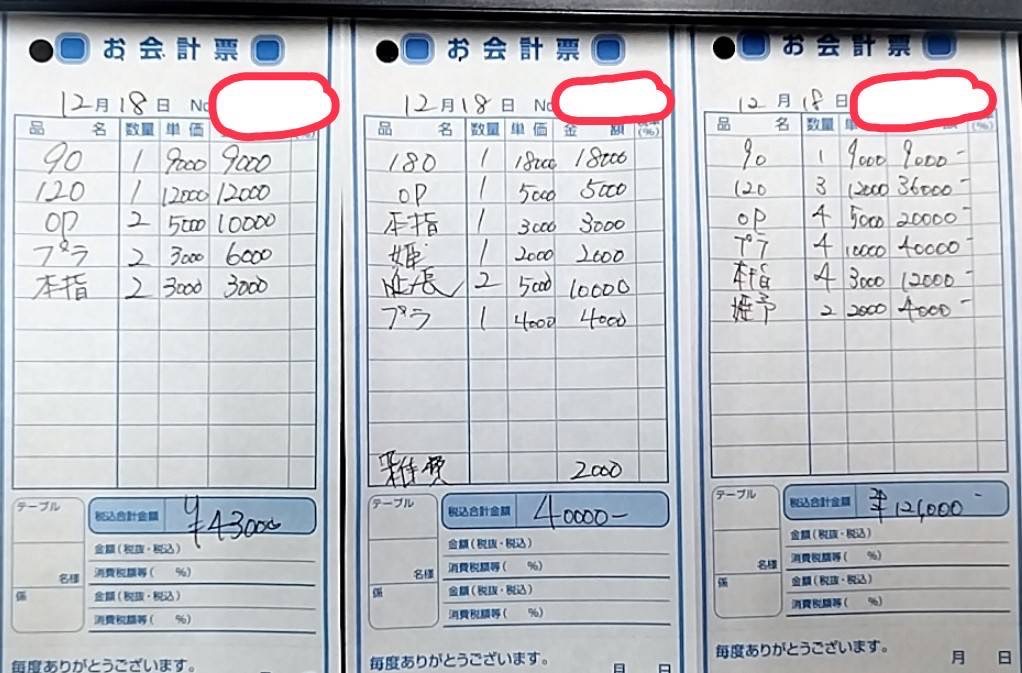 お会計票
12月18日 No
品名 数量 単価
90 1 9000 9000
120 1 12000 12000
OP 2 5000 10000
プラ 2 3000 6000
本指 2 3000 3000
テーブル
税込合計金額 ¥43000
金額(税抜・税込)
名様 消費税額等( %)
係 金額(税抜・税込)
消費税額等( %)
毎度ありがとうございます。
お会計票
12月18日 No
品名 数量 単価 金額 (%)
180 1 18000 18000
OP 1 5000 5000
本指 1 3000 3000
姫 1 2000 2000
延長 2 5000 10000
プラ 1 4000 4000
雑費 2000
テーブル
税込合計金額 40000-
金額(税抜・税込)
名様 消費税額等( %)
係 金額(税抜・税込)
消費税額等( %)
毎度ありがとうございます。
月 日
お会計票
12月18日
品名 数量 額 (%)
90 1 9000 9000-
120 3 12000 36000-
OP 4 5000 20000-
プラ 4 10000 40000-
本指 4 3000 12000-
姫予 2 2000 4000-
テーブル
税込合計金額 ¥121,000-
金額(税抜・税込)
名様 消費税額等( %)
係 金額(税抜・税込)
消費税額等( %)
毎度ありがとうございます。
月 日